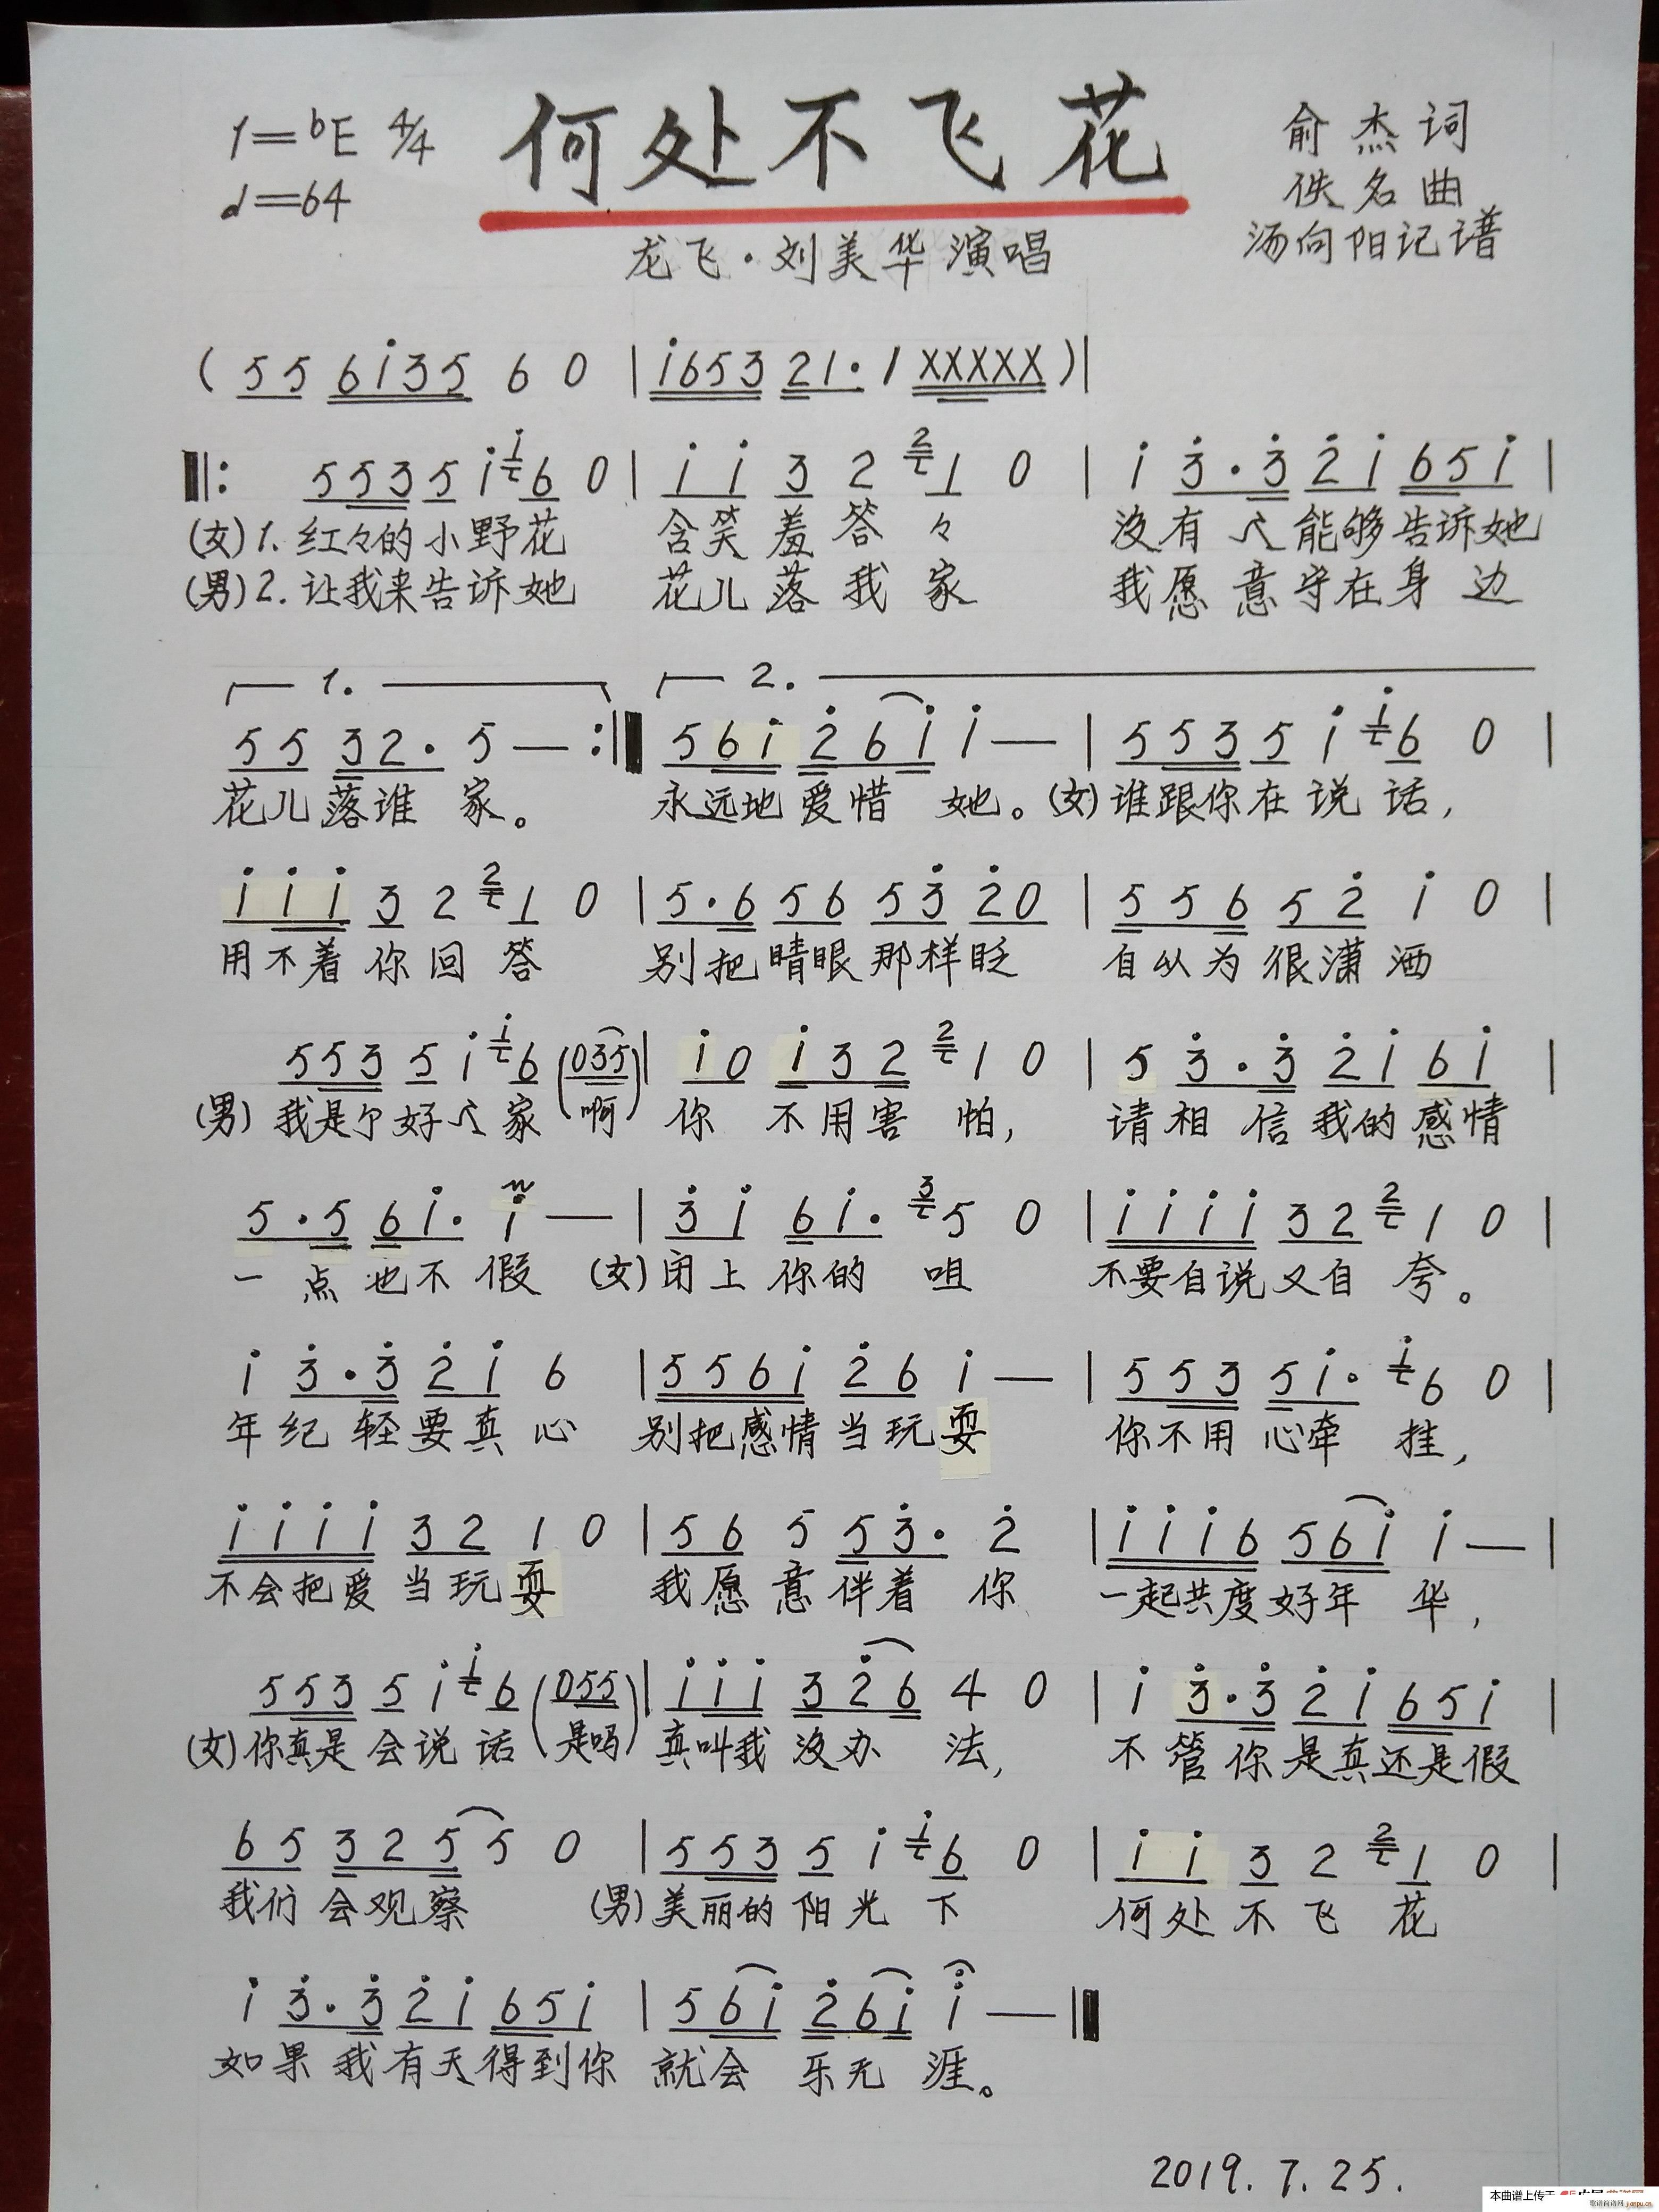 1=bE 4/4 何处不飞花 俞杰词
♩=64 佚名曲
龙飞·刘美华演唱 汤向阳记谱
( 5 5 6 i 3 5 6 0 | i 6 5 3 2 1· 1 X X X X X ) |
‖: 5 5 3 5 i i 6 0 | i i 3 2 2 1 0 | i 3·3 2 i 6 5 i |
(女) 1. 红々的小野花 含笑羞答々 没有人能够告诉她
(男) 2. 让我来告诉她 花儿落我家 我愿意守在身边
1. 2.
5 5 3 2· 5 — :‖ 5 6 i 2 6 i i — | 5 5 3 5 i i 6 0 |
花儿落谁家。 永远地爱惜她。(女) 谁跟你在说话,
i i i 3 2 2 1 0 | 5·6 5 6 5 3 2 0 | 5 5 6 5 2 i 0 |
用不着你回答 别把睛眼那样眨 自以为很潇洒
5 5 3 5 i i 6 (0 3 5) | i 0 i 3 2 2 1 0 | 5 3·3 2 i 6 i |
(男) 我是个好人家 (啊) 你不用害怕, 请相信我的感情
5·5 6 i· i — | 3 i 6 i· 3 5 0 | i i i i 3 2 2 1 0 |
一点也不假 (女) 闭上你的咀 不要自说又自夸。
i 3·3 2 i 6 | 5 5 6 i 2 6 i — | 5 5 3 5 i· i 6 0 |
年纪轻要真心 别把感情当玩耍 你不用心牵挂,
i i i i 3 2 1 0 | 5 6 5 5 3· 2 | i i i 6 5 6 i i — |
不会把爱当玩耍 我愿意伴着你 一起共度好年华,
5 5 3 5 i i 6 (0 5 5) | i i i 3 2 6 4 0 | i 3·3 2 i 6 5 i |
(女) 你真是会说话 (是吗) 真叫我没办法, 不管你是真还是假
6 5 3 2 5 5 0 | 5 5 3 5 i i 6 0 | i i 3 2 2 1 0 |
我们会观察 (男) 美丽的阳光下 何处不飞花
i 3·3 2 i 6 5 i | 5 6 i 2 6 i i — ‖
如果我有天得到你 就会乐无涯。
2019.7.25.
本曲谱上传于